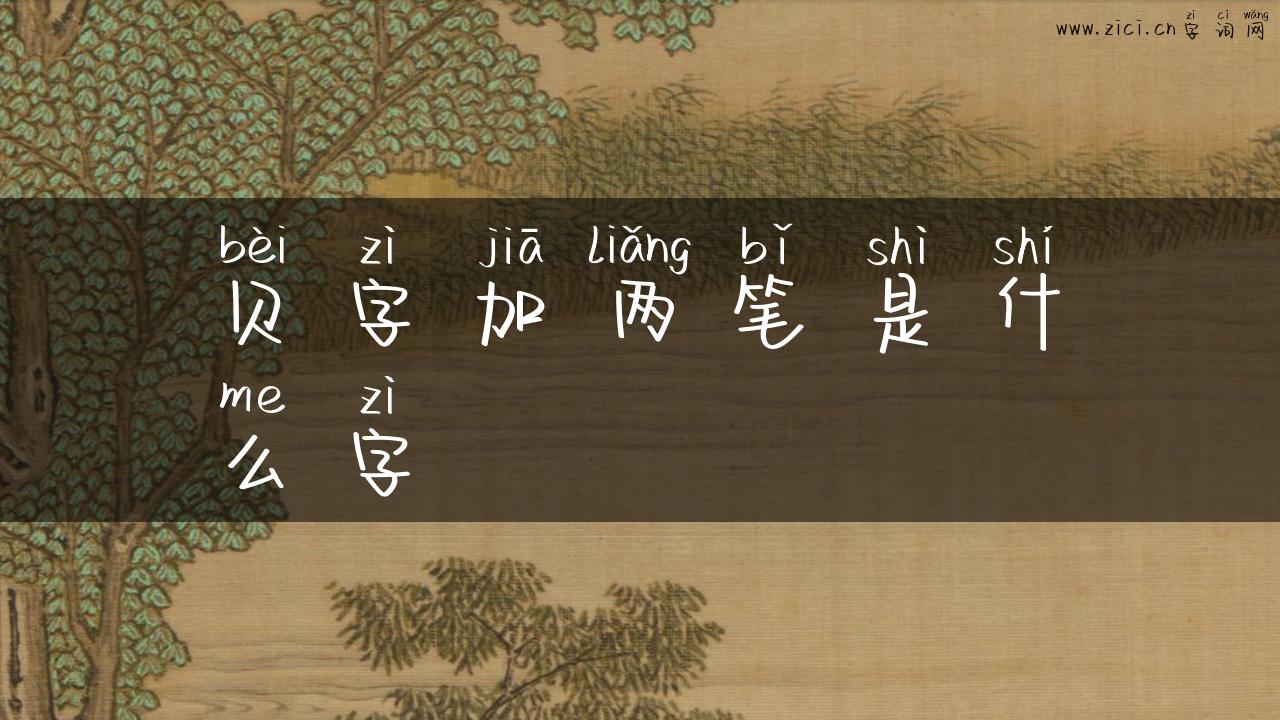 zì cí wǎng
www.zici.cn字词网
bèi zì jiā liǎng bǐ shì shí
贝字加两笔是什
me zì
么字